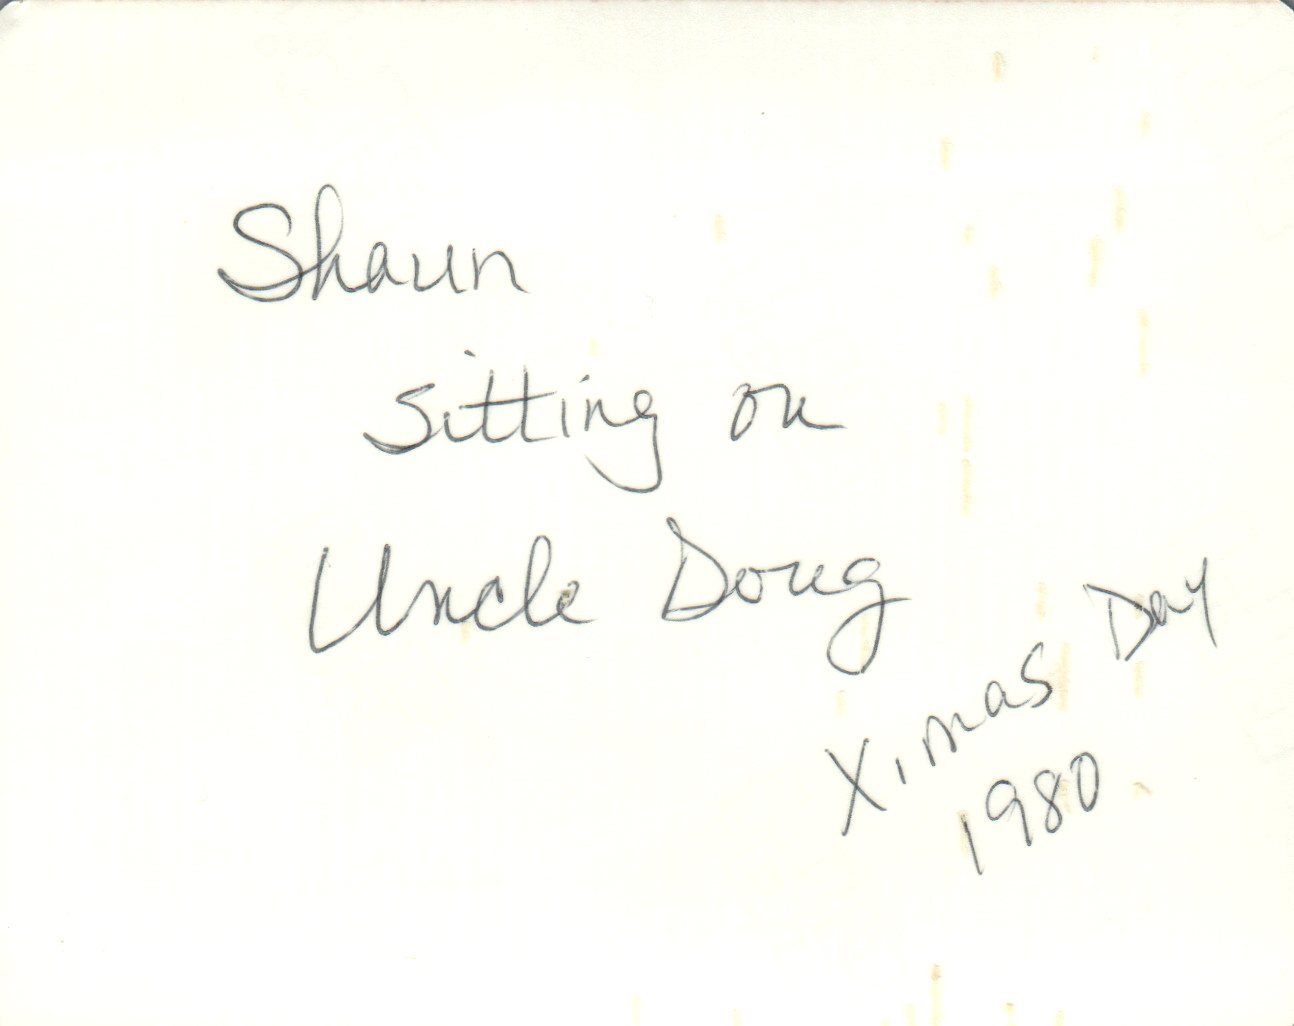 Shaun
sitting on
Uncle Doug
X, mas Day
1980